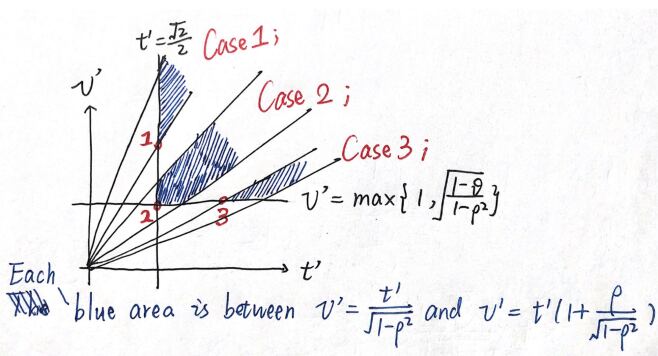 t' = √2/2
Case 1;
v'
Case 2;
1
Case 3;
v' = max{1, √(1-ρ/1-ρ²)}
2
3
t'
Each
blue area is between v' = t'/√1-ρ² and v' = t'(1+ρ/√1-ρ²)